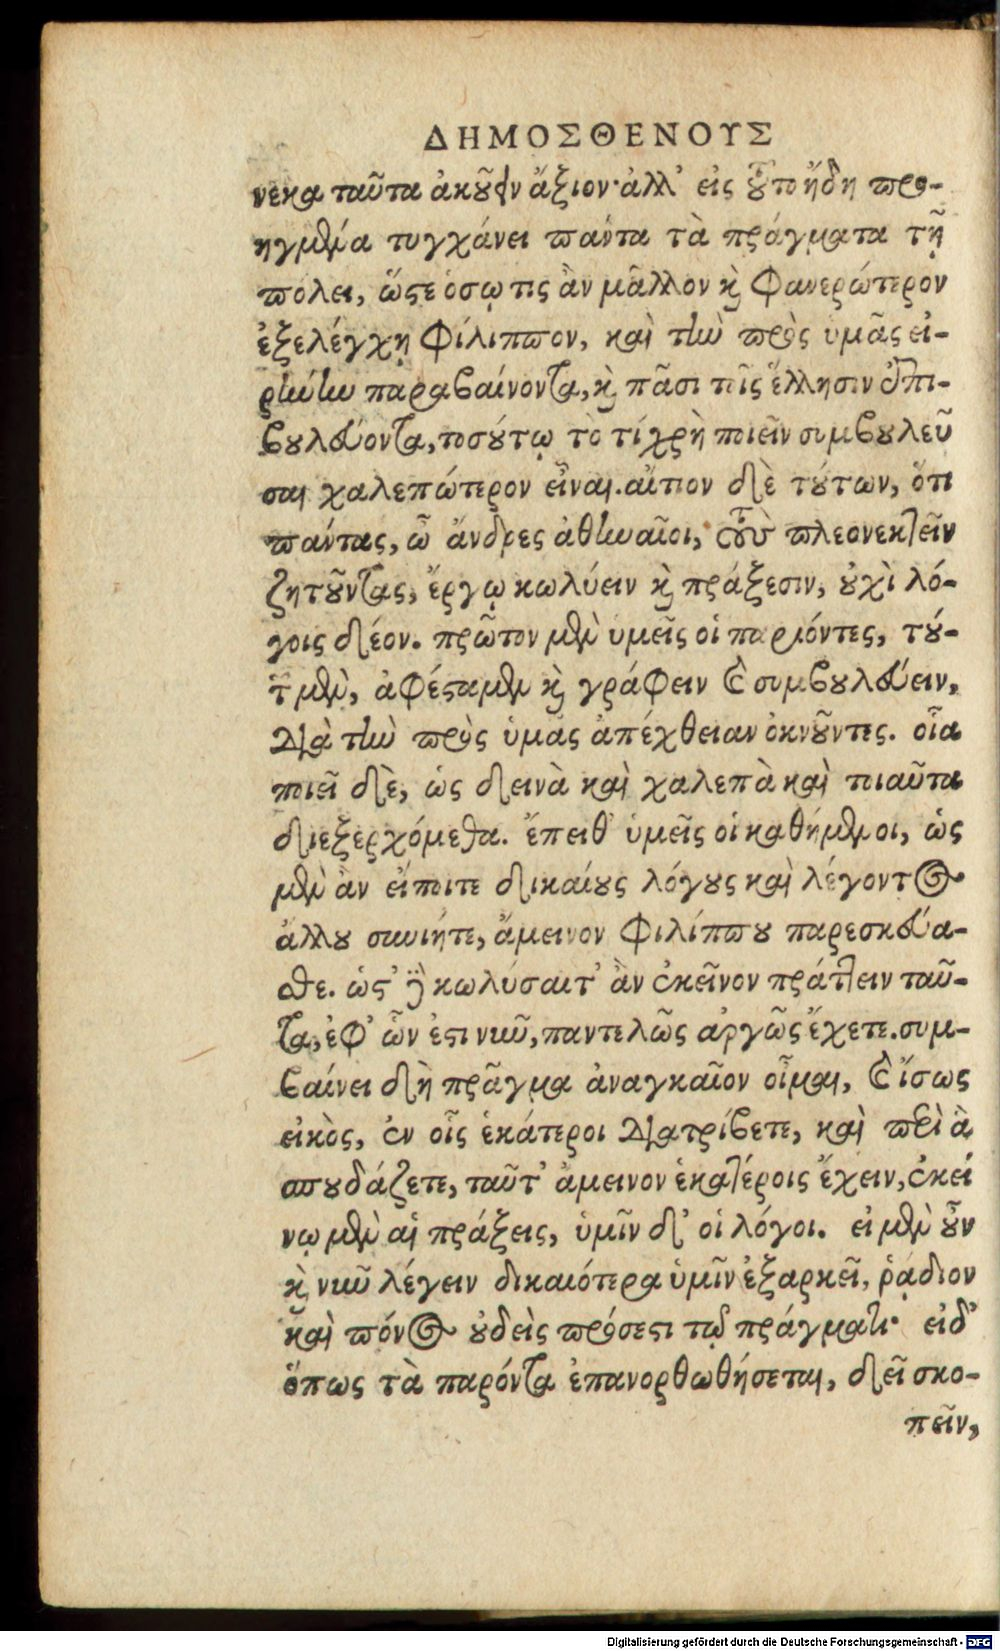 ΔΗΜΟΣΘΕΝΟΥΣ
νεκα ταῦτα ἀκούειν ἄξιον· ἀλλ' εἰς τοῦτο ἤδη προ-
ηγμένα τυγχάνει πάντα τὰ πράγματα τῇ
πόλει, ὥστε ὅσῳ τις ἂν μᾶλλον καὶ φανερώτερον
ἐξελέγχῃ Φίλιππον, καὶ τὴν πρὸς ὑμᾶς εἰ-
ρήνην παραβαίνοντα, καὶ πᾶσι τοῖς ἕλλησιν ἐπι-
βουλεύοντα, τοσούτῳ τὸ τί χρὴ ποιεῖν συμβουλεῦ
σαι χαλεπώτερον εἶναι. αἴτιον δὲ τούτων, ὅτι
πάντας, ὦ ἄνδρες ἀθηναῖοι, τοὺς πλεονεκτεῖν
ζητοῦντας, ἔργῳ κωλύειν καὶ πράξεσιν, οὐχὶ λό-
γοις δέον. πρῶτον μὲν ὑμεῖς οἱ παριόντες, τού-
των μὲν, ἀφέσταμεν καὶ γράφειν καὶ συμβουλεύειν,
διὰ τὴν πρὸς ὑμᾶς ἀπέχθειαν ὀκνοῦντες. οἷα
ποιεῖ δὲ, ὡς δεινὰ καὶ χαλεπὰ καὶ τοιαῦτα
διεξερχόμεθα. ἔπειθ' ὑμεῖς οἱ καθήμενοι, ὡς
μὲν ἂν εἴποιτε δικαίους λόγους καὶ λέγοντος
ἄλλου συνιῆτε, ἄμεινον Φιλίππου παρεσκεύα-
σθε. ὡς δὲ κωλύσαιτ' ἂν ἐκεῖνον πράττειν ταῦ-
τα, ἐφ' ὧν ἐστι νῦν, παντελῶς ἀργῶς ἔχετε. συμ-
βαίνει δὴ πρᾶγμα ἀναγκαῖον οἶμαι, καὶ ἴσως
εἰκὸς, ἐν οἷς ἑκάτεροι διατρίβετε, καὶ περὶ ἃ
σπουδάζετε, ταῦτ' ἄμεινον ἑκατέροις ἔχειν, ἐκεί
νῳ μὲν αἱ πράξεις, ὑμῖν δ' οἱ λόγοι. εἰ μὲν οὖν
καὶ νῦν λέγειν δικαιότερα ὑμῖν ἐξαρκεῖ, ῥάδιον
καὶ πόνος οὐδεὶς πρόσεστι τῷ πράγματι· εἰ δ'
ὅπως τὰ παρόντα ἐπανορθωθήσεται, δεῖ σκο-
πεῖν,
Digitalisierung gefördert durch die Deutsche Forschungsgemeinschaft - DFG